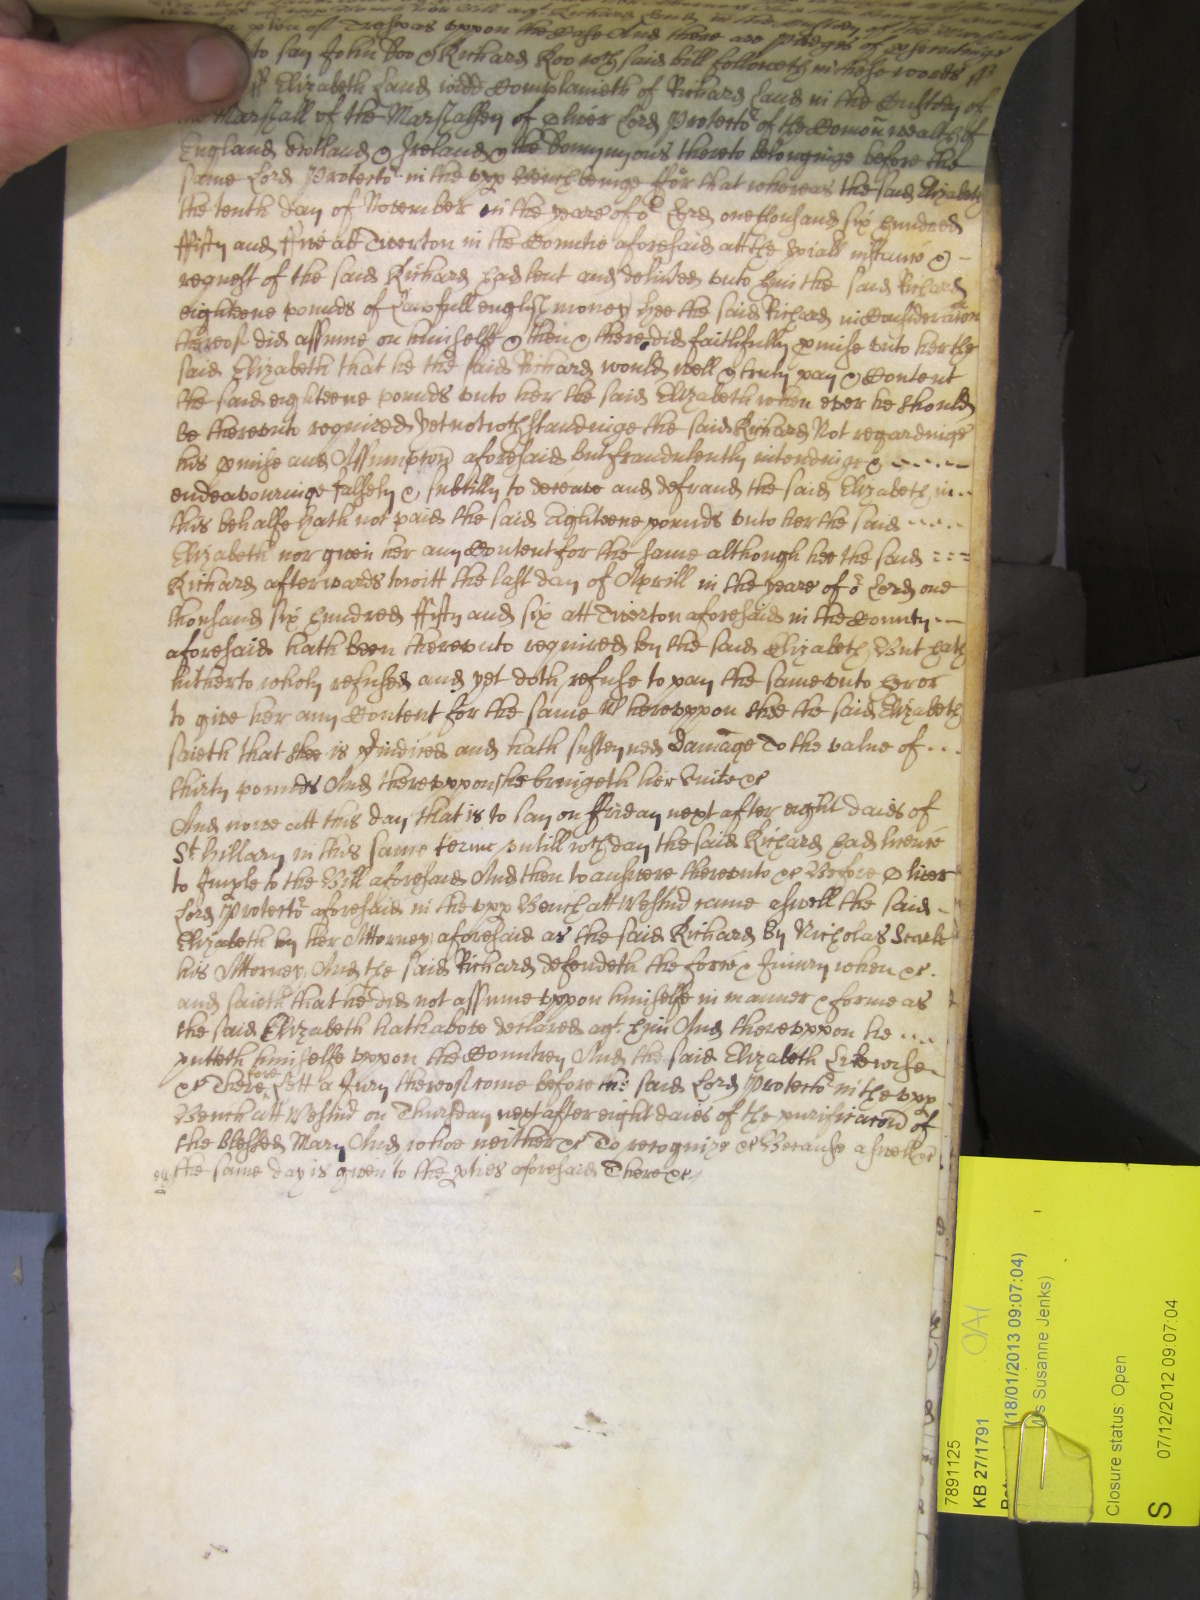 plea of Trespas uppon the Case And there are pledges of prosecutinge
to say John Doo & Richard Roo wch said bill followeth in these words ss
ss Elizabeth Land widd Complaineth of Richard Land in the Custody of
the Marshall of the Marshalsey of Oliver Lord Protector of the Comon wealth of
England Scotland & Ireland & the Dominyons thereto belonginge before the
same Lord Protector in the upp Bench beinge ffor that whereas the said Elizabeth
the tenth day of November in the yeare of or Lord one thousand six hundred
ffifty and ffive att Twerton in the Countie aforesaid att the speciall instance & -
request of the said Richard had lent and delivred unto him the said Richard
eighteene pounds of Lawfull english money hee the said Richard in Consideracon
thereof did assume on himselfe & then & there did faithfully pmise unto her the
said Elizabeth that he the said Richard would well & truly pay & Content
the said eighteene pounds unto her the said Elizabeth when ever he should
be thereunto required yet notwthstandinge the said Richard Not regardinge
his pmise and Assumpton aforesaid but fraudulently intendinge & -----
endeavouringe falsely & subtilly to deceave and defraud the said Elizabeth in--
this behalfe hath not paid the said Eighteene pounds unto her the said ----
Elizabeth nor given her any Content for the same although hee the said ===
Richard afterwards towitt the last day of Aprill in the yeare of or Lord one
thousand six hundred ffifty and six att Twerton aforesaid in the County --
aforesaid hath been thereunto required by the said Elizabeth But hath
hitherto wholy refused and yet doth refuse to pay the same unto her or
to give her any Content for the same Whereuppon shee the said Elizabeth
saieth that shee is Indired and hath susteyned Damage To the value of ...
thirty pounds And thereuppon she bringeth her Suite &c
And nowe att this day that is to say on ffriday next after eight daies of
St Hillary in this same terme untill wch day the said Richard had licence
to Imple to the Bill aforesaid And then to answere thereunto &c Before Oliver
Lord Protector aforesaid in the upp Bench att Westmd came aswell the said -
Elizabeth by her Attorney aforesaid as the said Richard by Nicholas
his Attorney And the said Richard defendeth the force & Iniury when &c.
and saieth that he did not assume uppon himselfe in manner & forme as
the said Elizabeth hath above declared agt. him And thereuppon he ...
putteth himselfe uppon the Countrey And the said Elizabeth Likewise
&c Therefore Lett a Jury thereof come before the said Lord Protector in the upp
Bench att Westmd on Thursday next after eight daies of the purificacon of
the blessed Mary And whoe neither &c To recognize &c Because aswell &c
the same day is given to the pties aforesaid There &c
7891125
KB 27/1791
(18/01/2013 09:07:04)
Ms Susanne Jenks)
Closure status: Open
S
07/12/2012 09:07:04